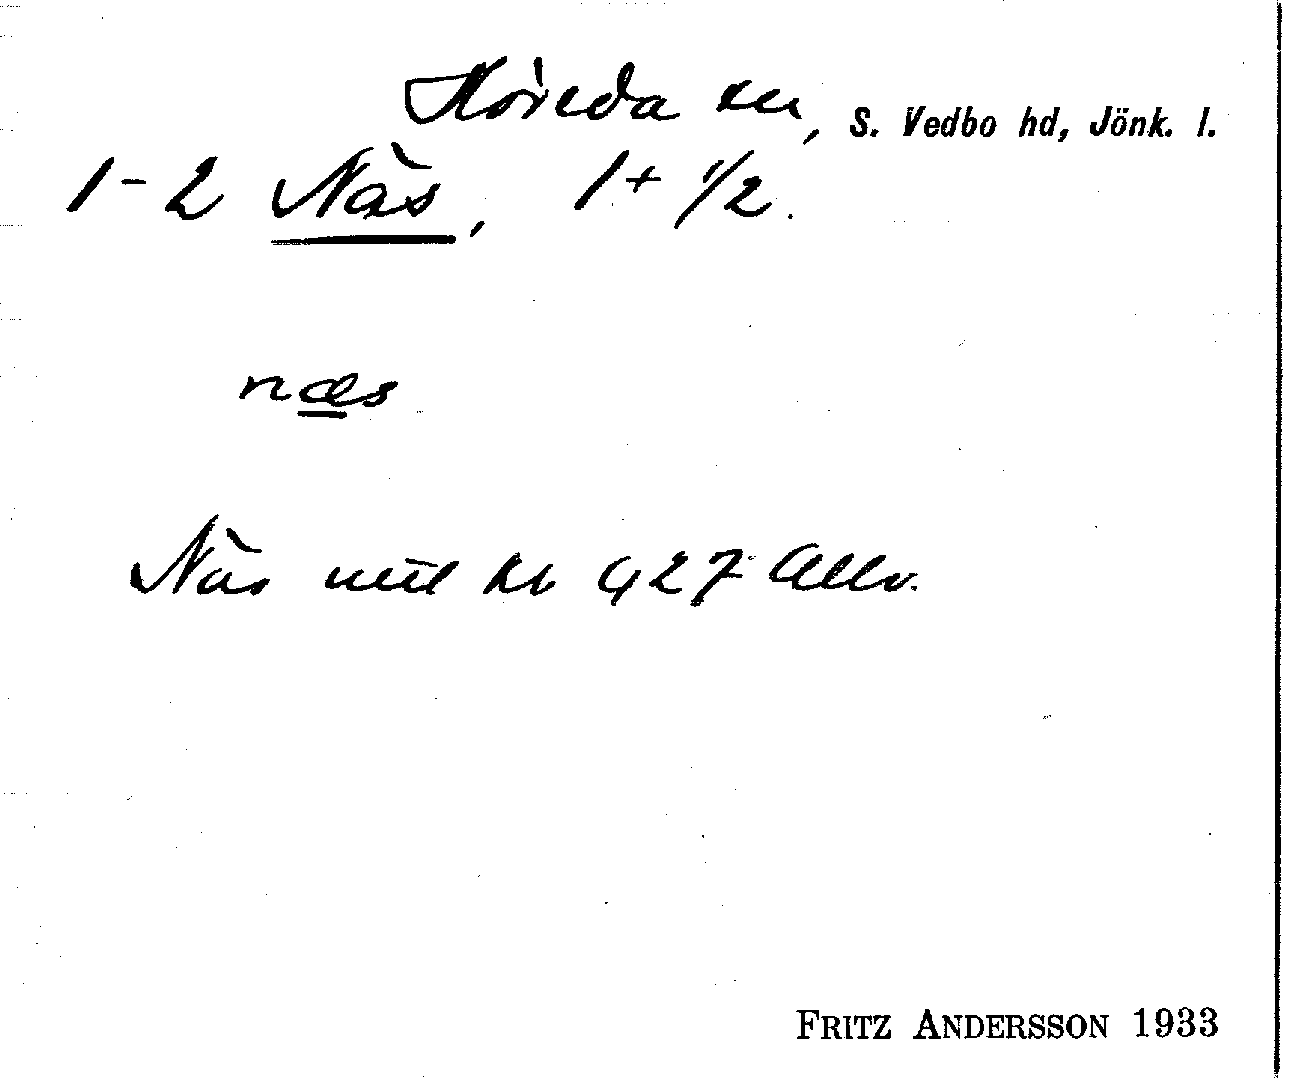 Höreda sn, S. Vedbo hd, Jönk. l.
1-2 Näs, 1 + 1/2.
næs
Näs
FRITZ ANDERSSON 1933